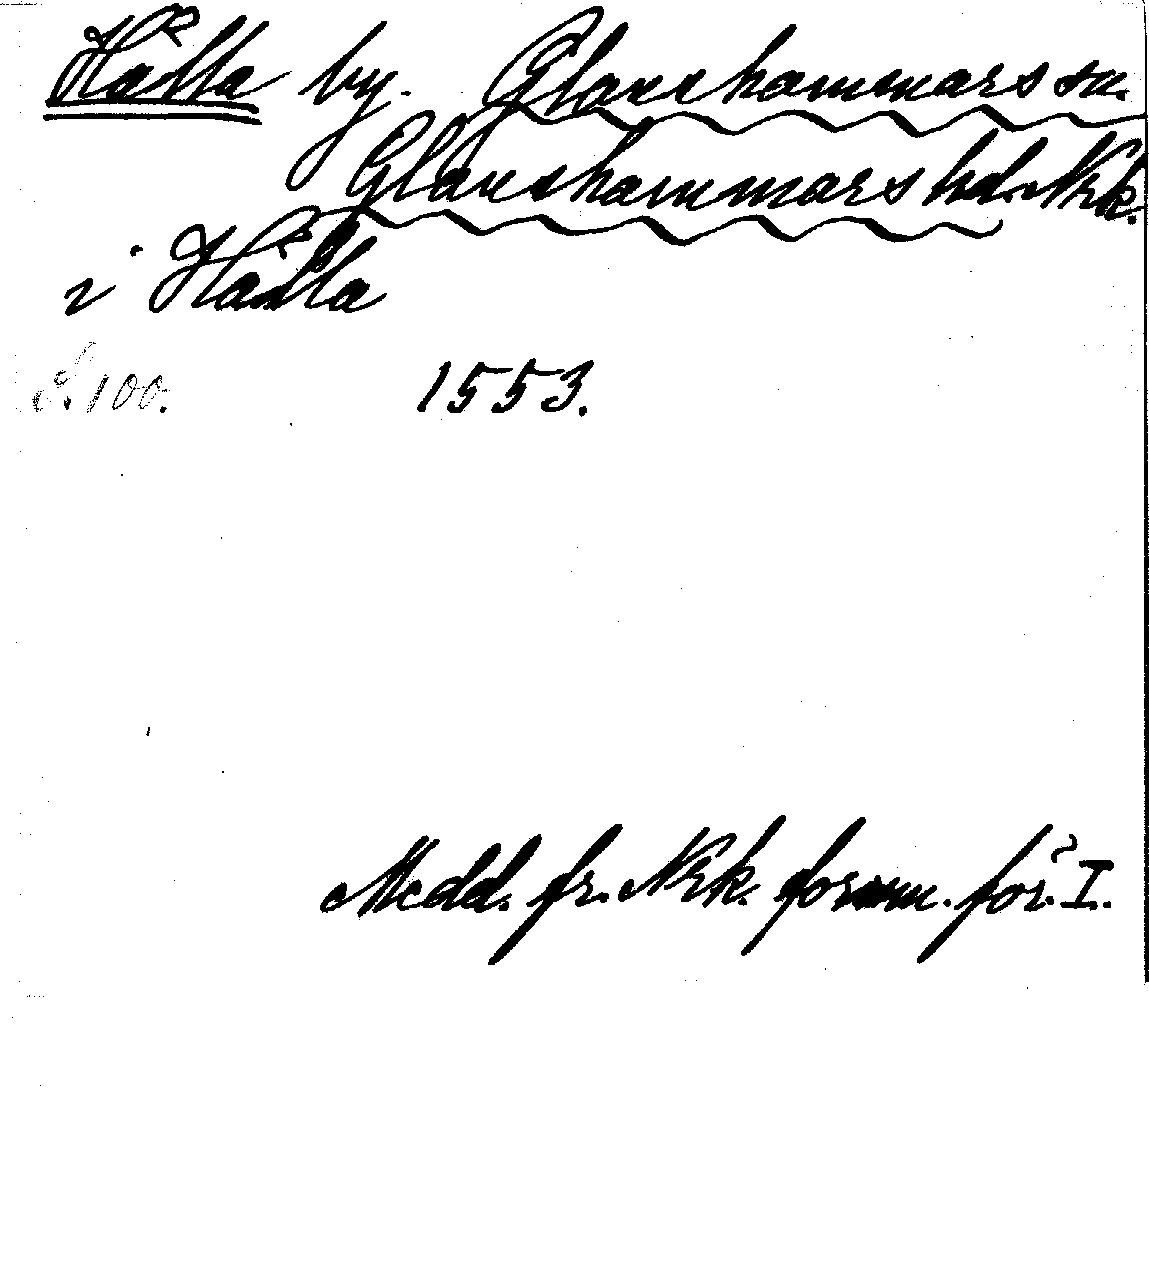 Hälla by. Glanshammars sn.
Glanshammars hd. Nrk.
i Hälla
S. 100. 1553.
Medd. fr. Nrk. fornm. för. I.